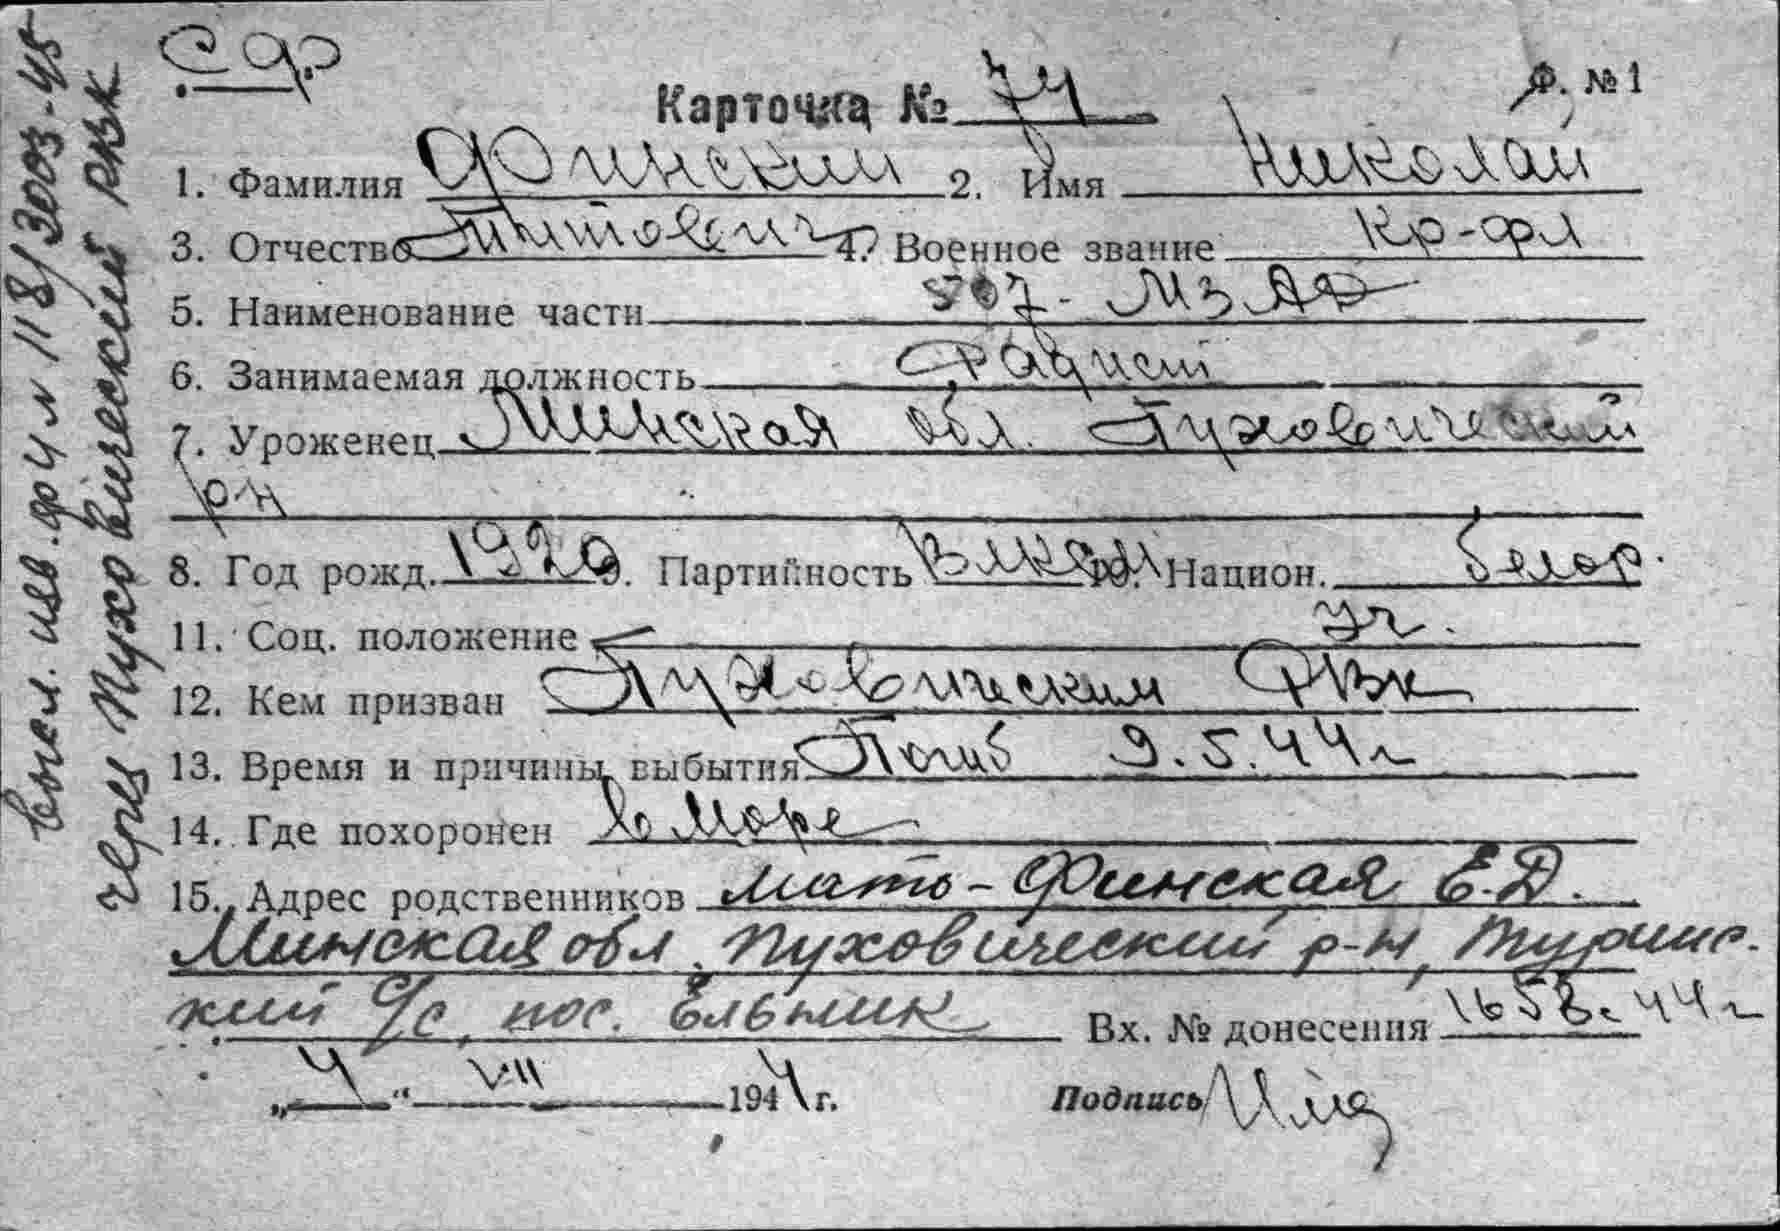 С. Ф.
Ф. № 1
Карточка № 74
1. Фамилия Финский 2. Имя Николай
3. Отчество Титович 4. Военное звание Кр-фл
5. Наименование части 507 - МЗАД
6. Занимаемая должность Радист
7. Уроженец Минская обл. Пуховический
р-н
8. Год рожд. 1920 9. Партийность ВЛКСМ 10. Национ. белор.
11. Соц. положение уч.
12. Кем призван Пуховическим РВК
13. Время и причины выбытия Погиб 9.5.44 г
14. Где похоронен в море
15. Адрес родственников мать - Финская Е.Д.
Минская обл. Пуховический р-н, Туринс-
кий с/с, пос. Ельник
Вх. № донесения 1658с 44 г
„4" VII 1944 г. Подпись
высл. изв. ф 4 № 118/3003-45
через Пуховический РВК